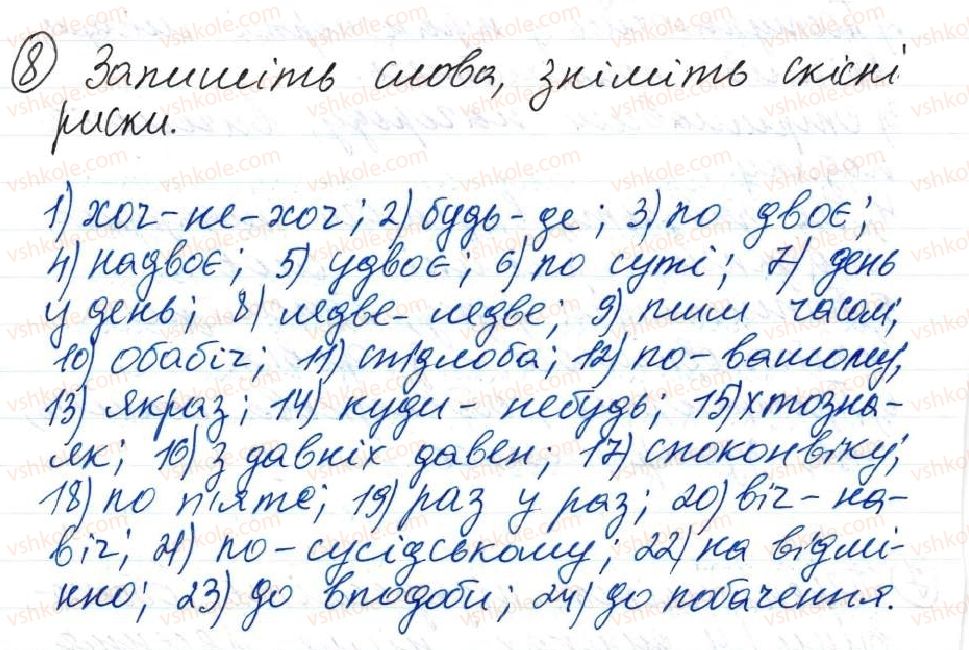 8 Запишіть слова, зніміть скісні
риски.
1) хоч-не-хоч; 2) будь-де; 3) по двоє;
4) надвоє; 5) удвоє; 6) по суті; 7) день
у день; 8) ледве-ледве; 9) тим часом;
10) обабіч; 11) спідлоба; 12) по-вашому;
13) якраз; 14) куди-небудь; 15) хтозна-
як; 16) з давніх давен; 17) споконвіку;
18) по п'яте; 19) раз у раз; 20) віч-на-
віч; 21) по-сусідському; 22) на відмі-
нно; 23) до вподоби; 24) до побачення.